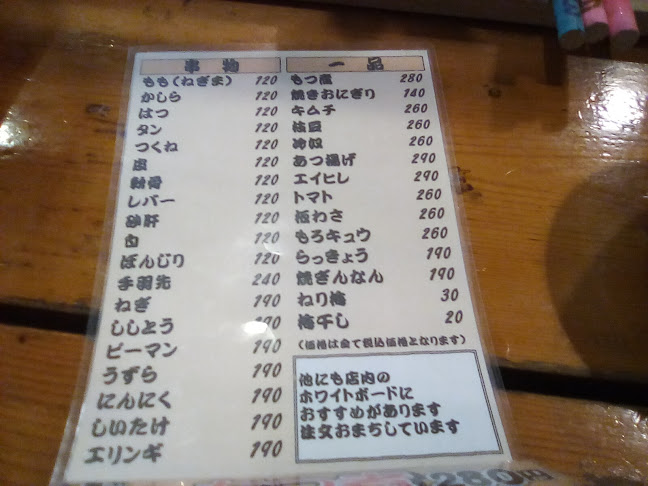 串物
もも(ねぎま) 120
かしら 120
はつ 120
タン 120
つくね 120
皮 120
軟骨 120
レバー 120
砂肝 120
白 120
ぼんじり 120
手羽先 240
ねぎ 190
ししとう 190
ピーマン 190
うずら 190
にんにく 190
しいたけ 190
エリンギ 190
一品
もつ煮 280
焼きおにぎり 140
キムチ 260
枝豆 260
冷奴 260
あつ揚げ 290
エイヒレ 290
トマト 260
板わさ 260
もろキュウ 260
らっきょう 190
焼ぎんなん 190
ねり梅 30
梅干し 20
(価格は全て税込価格となります)
他にも店内の
ホワイトボードに
おすすめがあります
注文おまちしています
280円